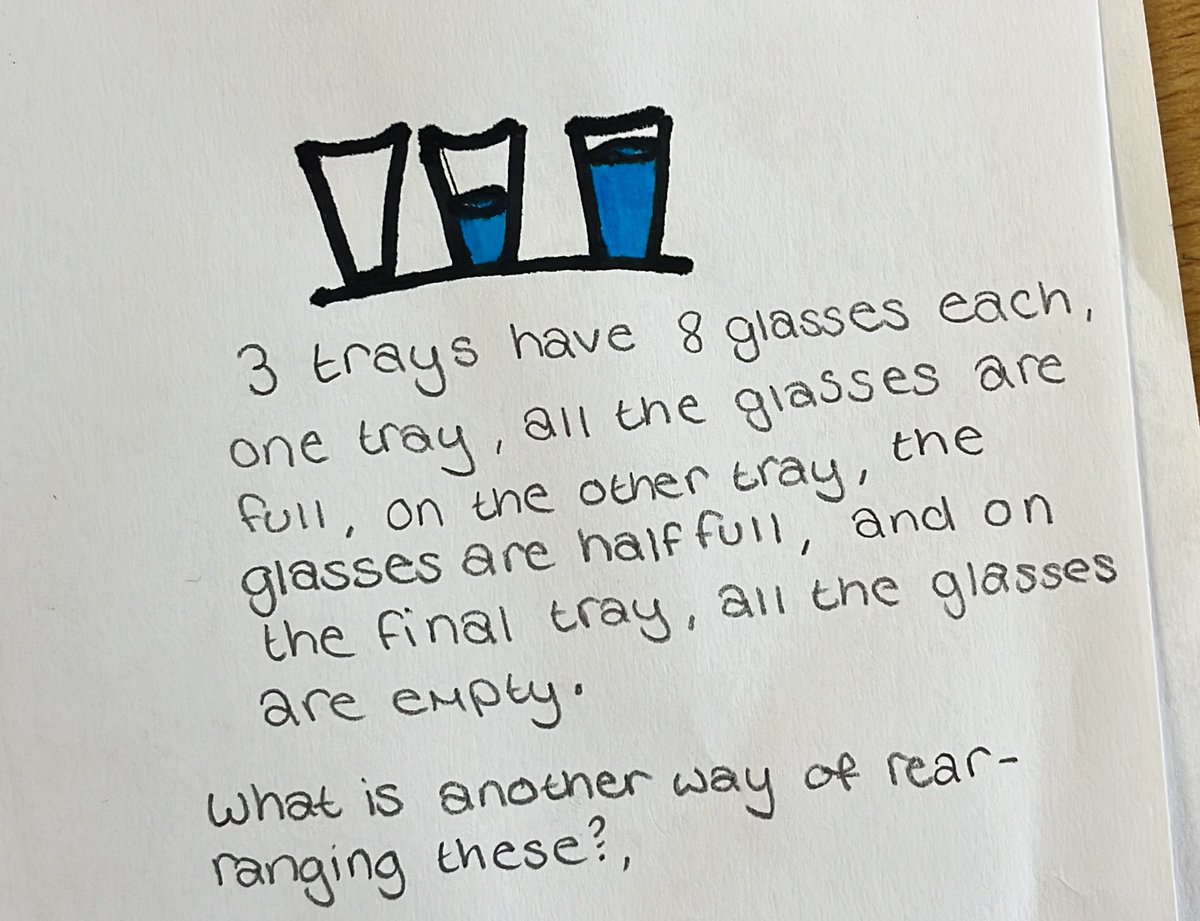 3 trays have 8 glasses each,
one tray, all the glasses are
full, on the other tray, the
glasses are half full, and on
the final tray, all the glasses
are empty.
What is another way of rear-
ranging these?,